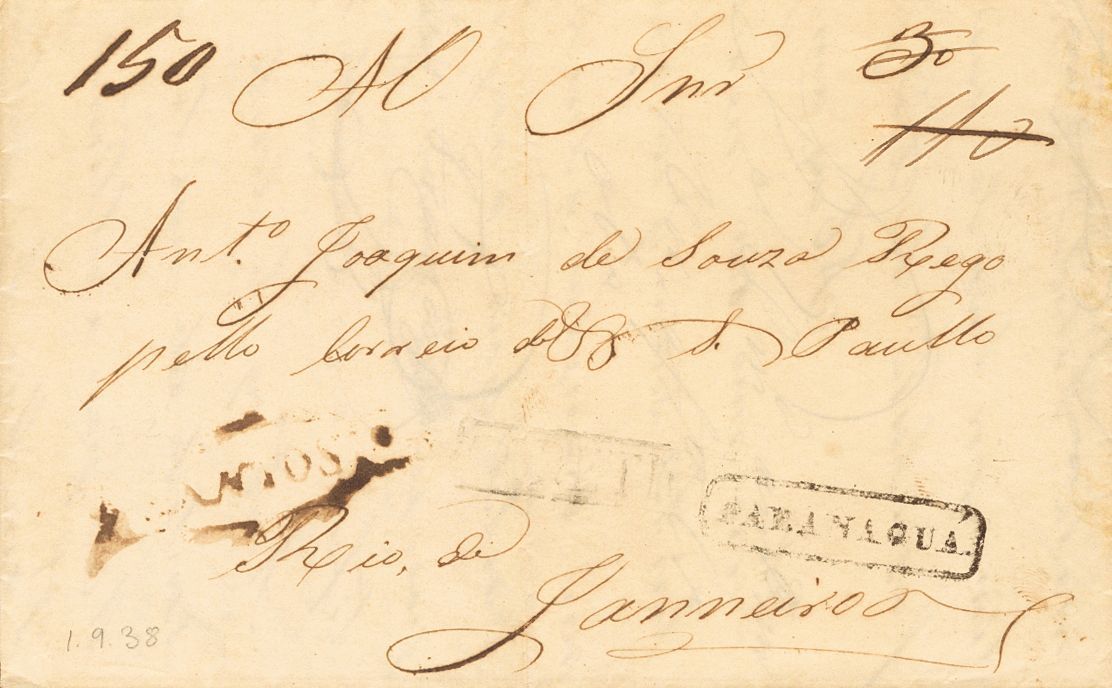 150 Al Snr 50
110
Ant.º Joaquim de Souza Rego
pello Correio de S. Paullo
SANTOS
PARANAGUÁ
Rio, de
Janneiro
1.9.38